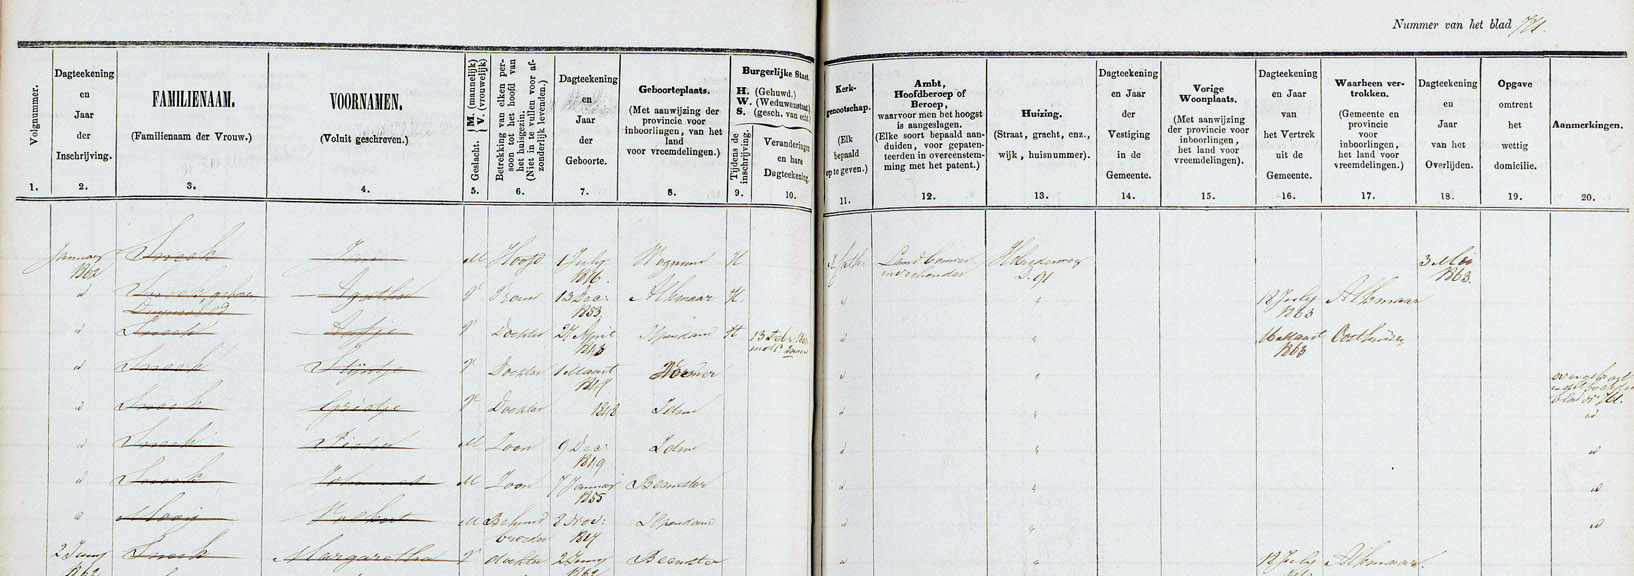 Nummer van het blad
Volgnummer.
1.
Dagteekening
en
Jaar
der
Inschrijving.
2.
FAMILIENAAM.
(Familienaam der Vrouw.)
3.
VOORNAMEN.
(Voluit geschreven.)
4.
Geslacht. { M. (mannelijk) V. (vrouwelijk)
5.
Betrekking van elken per-
soon tot het hoofd van
het huisgezin.
(Niet in te vullen voor af-
zonderlijk levenden.)
6.
Dagteekening
en
Jaar
der
Geboorte.
7.
Geboorteplaats.
(Met aanwijzing der
provincie voor
inboorlingen, van het
land
voor vreemdelingen.)
8.
Burgerlijke Staat.
H. (Gehuwd.)
W. (Weduwenstaat.)
S. (gesch. van echt.)
Tijdens de
inschrijving.
9.
Veranderingen
en hare
Dagteekening.
10.
Kerk-
genootschap.
(Elk
bepaald
op te geven.)
11.
Ambt,
Hoofdberoep of
Beroep,
waarvoor men het hoogst
is aangeslagen.
(Elke soort bepaald aan-
duiden, voor gepaten-
teerden in overeenstem-
ming met het patent.)
12.
Huizing.
(Straat, gracht, enz.,
wijk, huisnummer).
13.
Dagteekening
en Jaar
der
Vestiging
in de
Gemeente.
14.
Vorige
Woonplaats.
(Met aanwijzing
der provincie voor
inboorlingen,
het land voor
vreemdelingen).
15.
Dagteekening
en Jaar
van
het Vertrek
uit de
Gemeente.
16.
Waarheen ver-
trokken.
(Gemeente en
provincie
voor
inboorlingen,
het land voor
vreemdelingen.)
17.
Dagteekening
en
Jaar
van het
Overlijden.
18.
Opgave
omtrent
het
wettig
domicilie.
19.
Aanmerkingen.
20.
Januarij 1862 Sneek Jan M Hoofd 1 July Wognum H Landbouwer 3 Mei 1863
id Sneek, geboren Agatha V Vrouw 13 Dec: 1833 Alkmaar H. 18 July 1863 Alkmaar
id Sneek Aafje V Dochter 27 April 1843 Ilpendam H 16 Maart 1863 Oosthuizen
id Sneek Stijntje V Dochter 1 Maart 1847
id Sneek Grietje V Dochter 1848 Idem id
id Sneek Pieter M Zoon 9 Dec: 1849 Idem id
id Sneek Johannes M Zoon 7 Januarij 1855 Beemster id
id Mooij M Behuwd broeder 2 Nov: 1817 Ilpendam id
2 Juny 1862 Sneek Margaretha V dochter 2 Juny 1862 Beemster 18 July Alkmaar